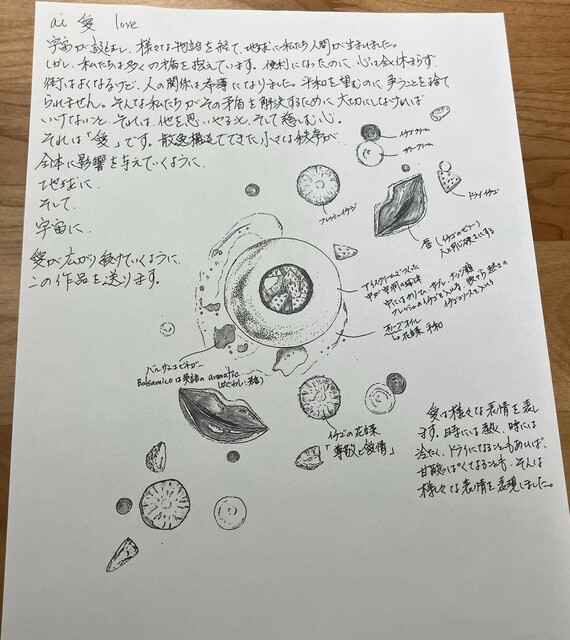 ai 愛 love
宇宙が誕生し、様々な物語を経て、地球に私たち人間が生まれました。
しかし、私たちは多くの矛盾を抱えています。便利になったのに、心は全く休まらず
街はよくなるけど、人の関係は希薄になりました。平和を望むのに、争うことを捨て
られません。そんな私たちがその矛盾を解決するために大切にしなければ
いけないこと。それは、他を思いやること、そして慈む心。
それは「愛」です。散逸構造でできた小さな秩序が
全体に影響を与えていくように、
地球に
そして
宇宙に、
愛が広がり続けていくように、
この作品を送ります。
イチゴクリーム
サワークリーム
ドライイチゴ
フレッシュイチゴ
唇(イチゴのゼリー)
人と同じ硬さにする
アイスクリームでつくった
中が空洞の球体
フレッシュのイチゴを入れる
イチゴのソースを入れる
オリーブオイル
花言葉 平和
バルサミコビネガー
Balsamicoは英語のaromatic
(かぐわしい、芳香)
イチゴの花言葉
「尊敬と愛情」
愛は様々な表情を表し
ます。時には熱く、時には
冷たく、ドライになることもあれば、
甘酸っぱくなることも、そんな
様々な表情を表現しました。